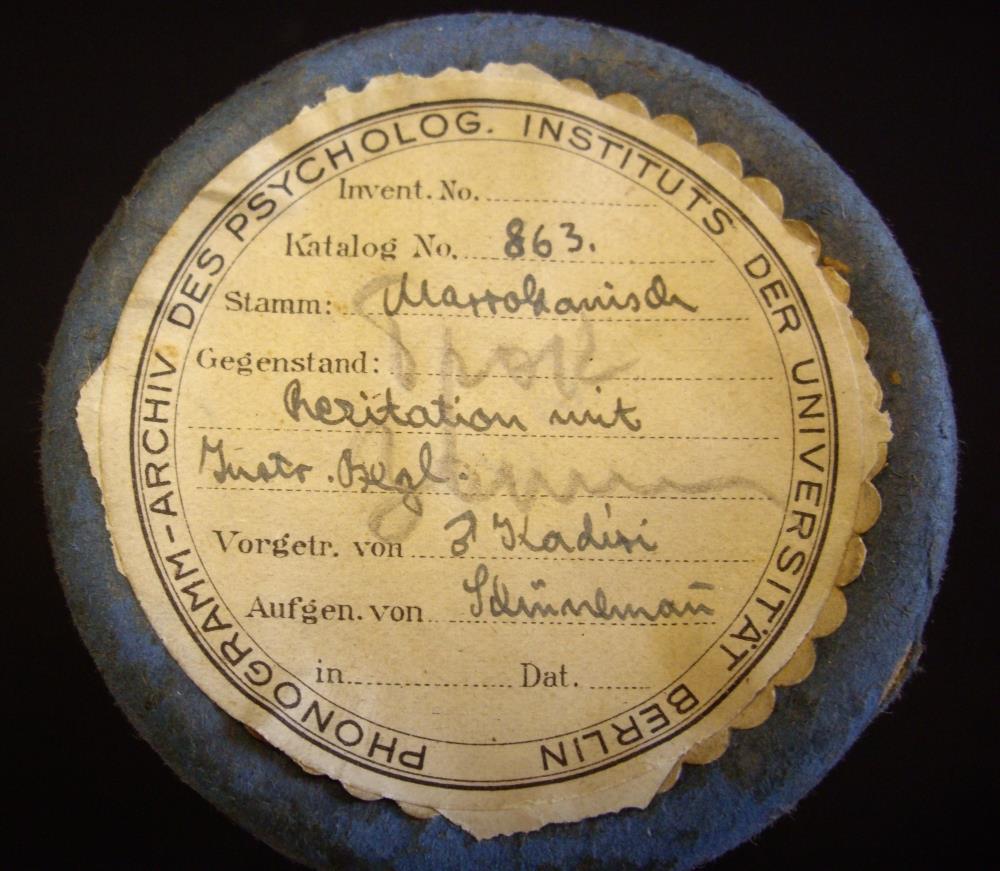 PHONOGRAMM-ARCHIV DES PSYCHOLOG. INSTITUTS DER UNIVERSITÄT BERLIN
Invent. No.
Katalog No. 863.
Stamm: Marrokanisch
Gegenstand:
Rezitation mit
Instr. Begl.
Vorgetr. von ♂ Kadiri
Aufgen. von Schünemann
in Dat.